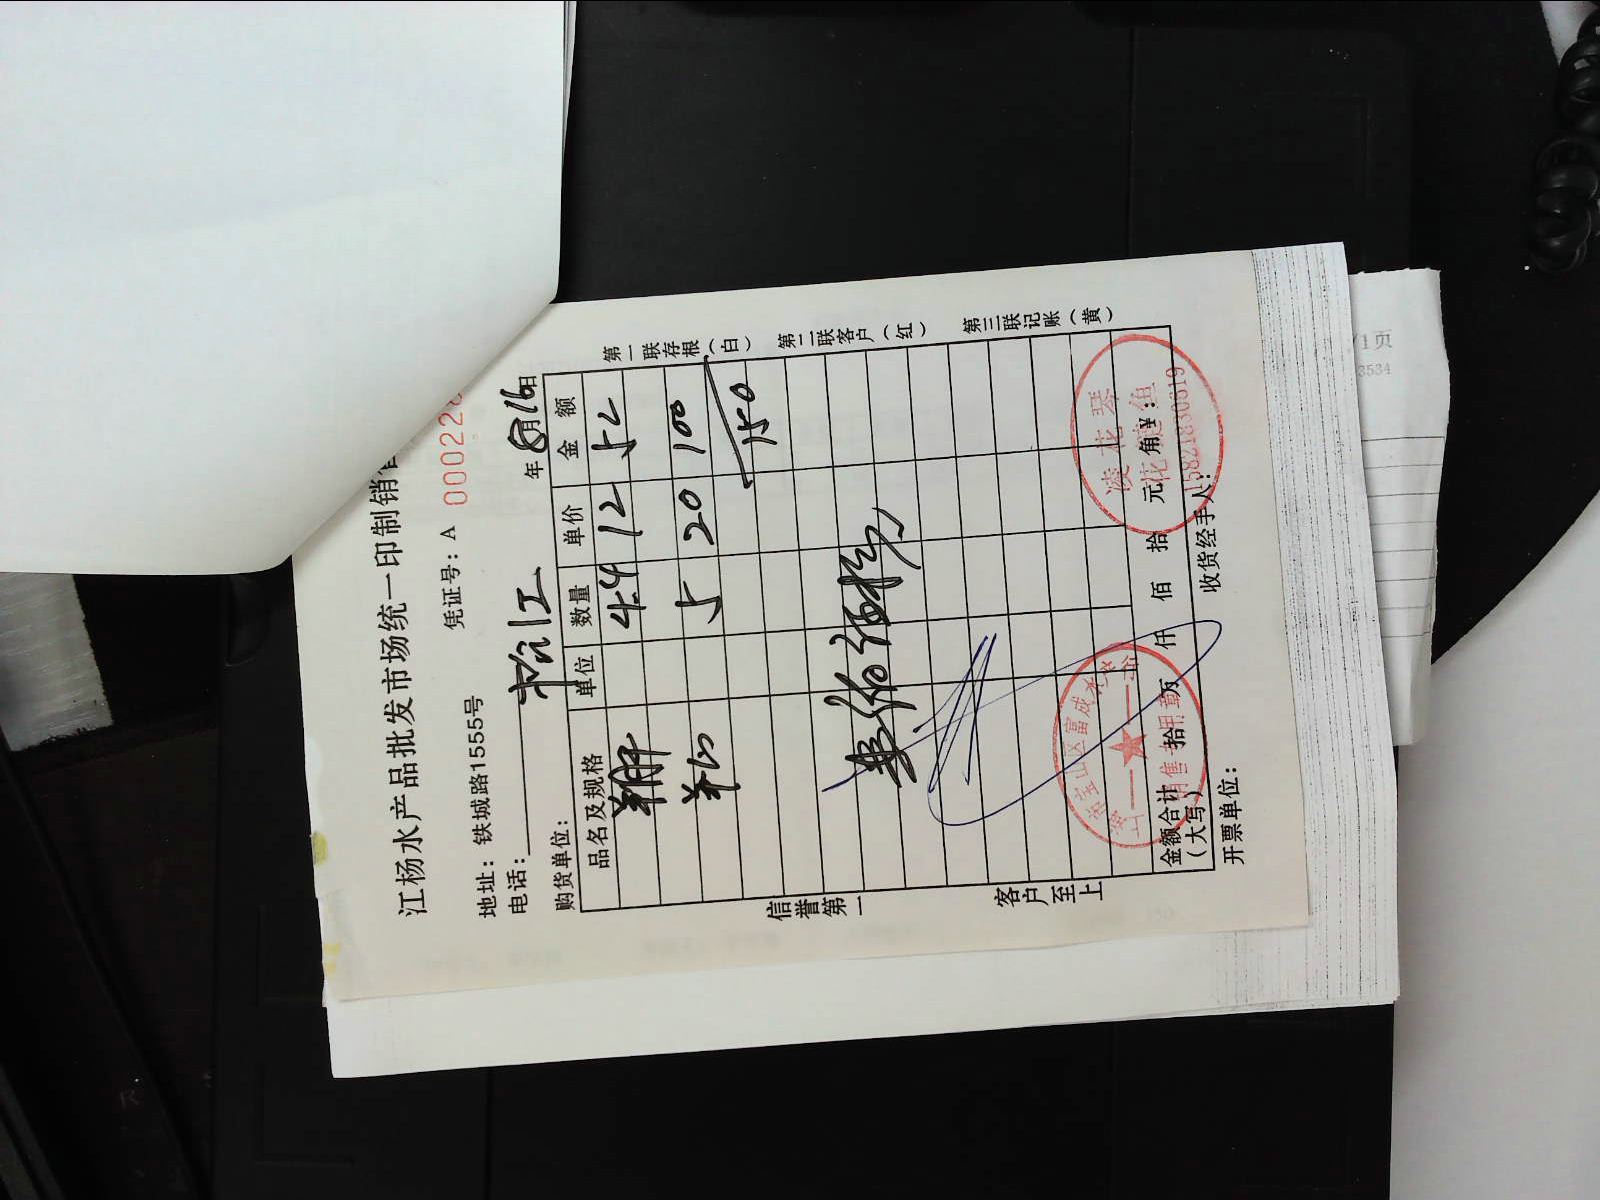 江杨水产品批发市场统一印制销
凭证号：A 00022
地址：铁城路1555号
电话：
购货单位： 松江 年 8月16日
品名及规格 单位 数量 单价 金额
4.4 12 52
5 20 100
150
信誉第一
客户至上
第一联存根（白）
第二联客户（红）
第三联记账（黄）
金额合计（大写） 拾 万 仟 佰 拾 元 角 ¥：
开票单位： 收货经手人：
凌花琴
花鲢鱼
15821830619
宝山区富成水
销售专用章
/1页
3534